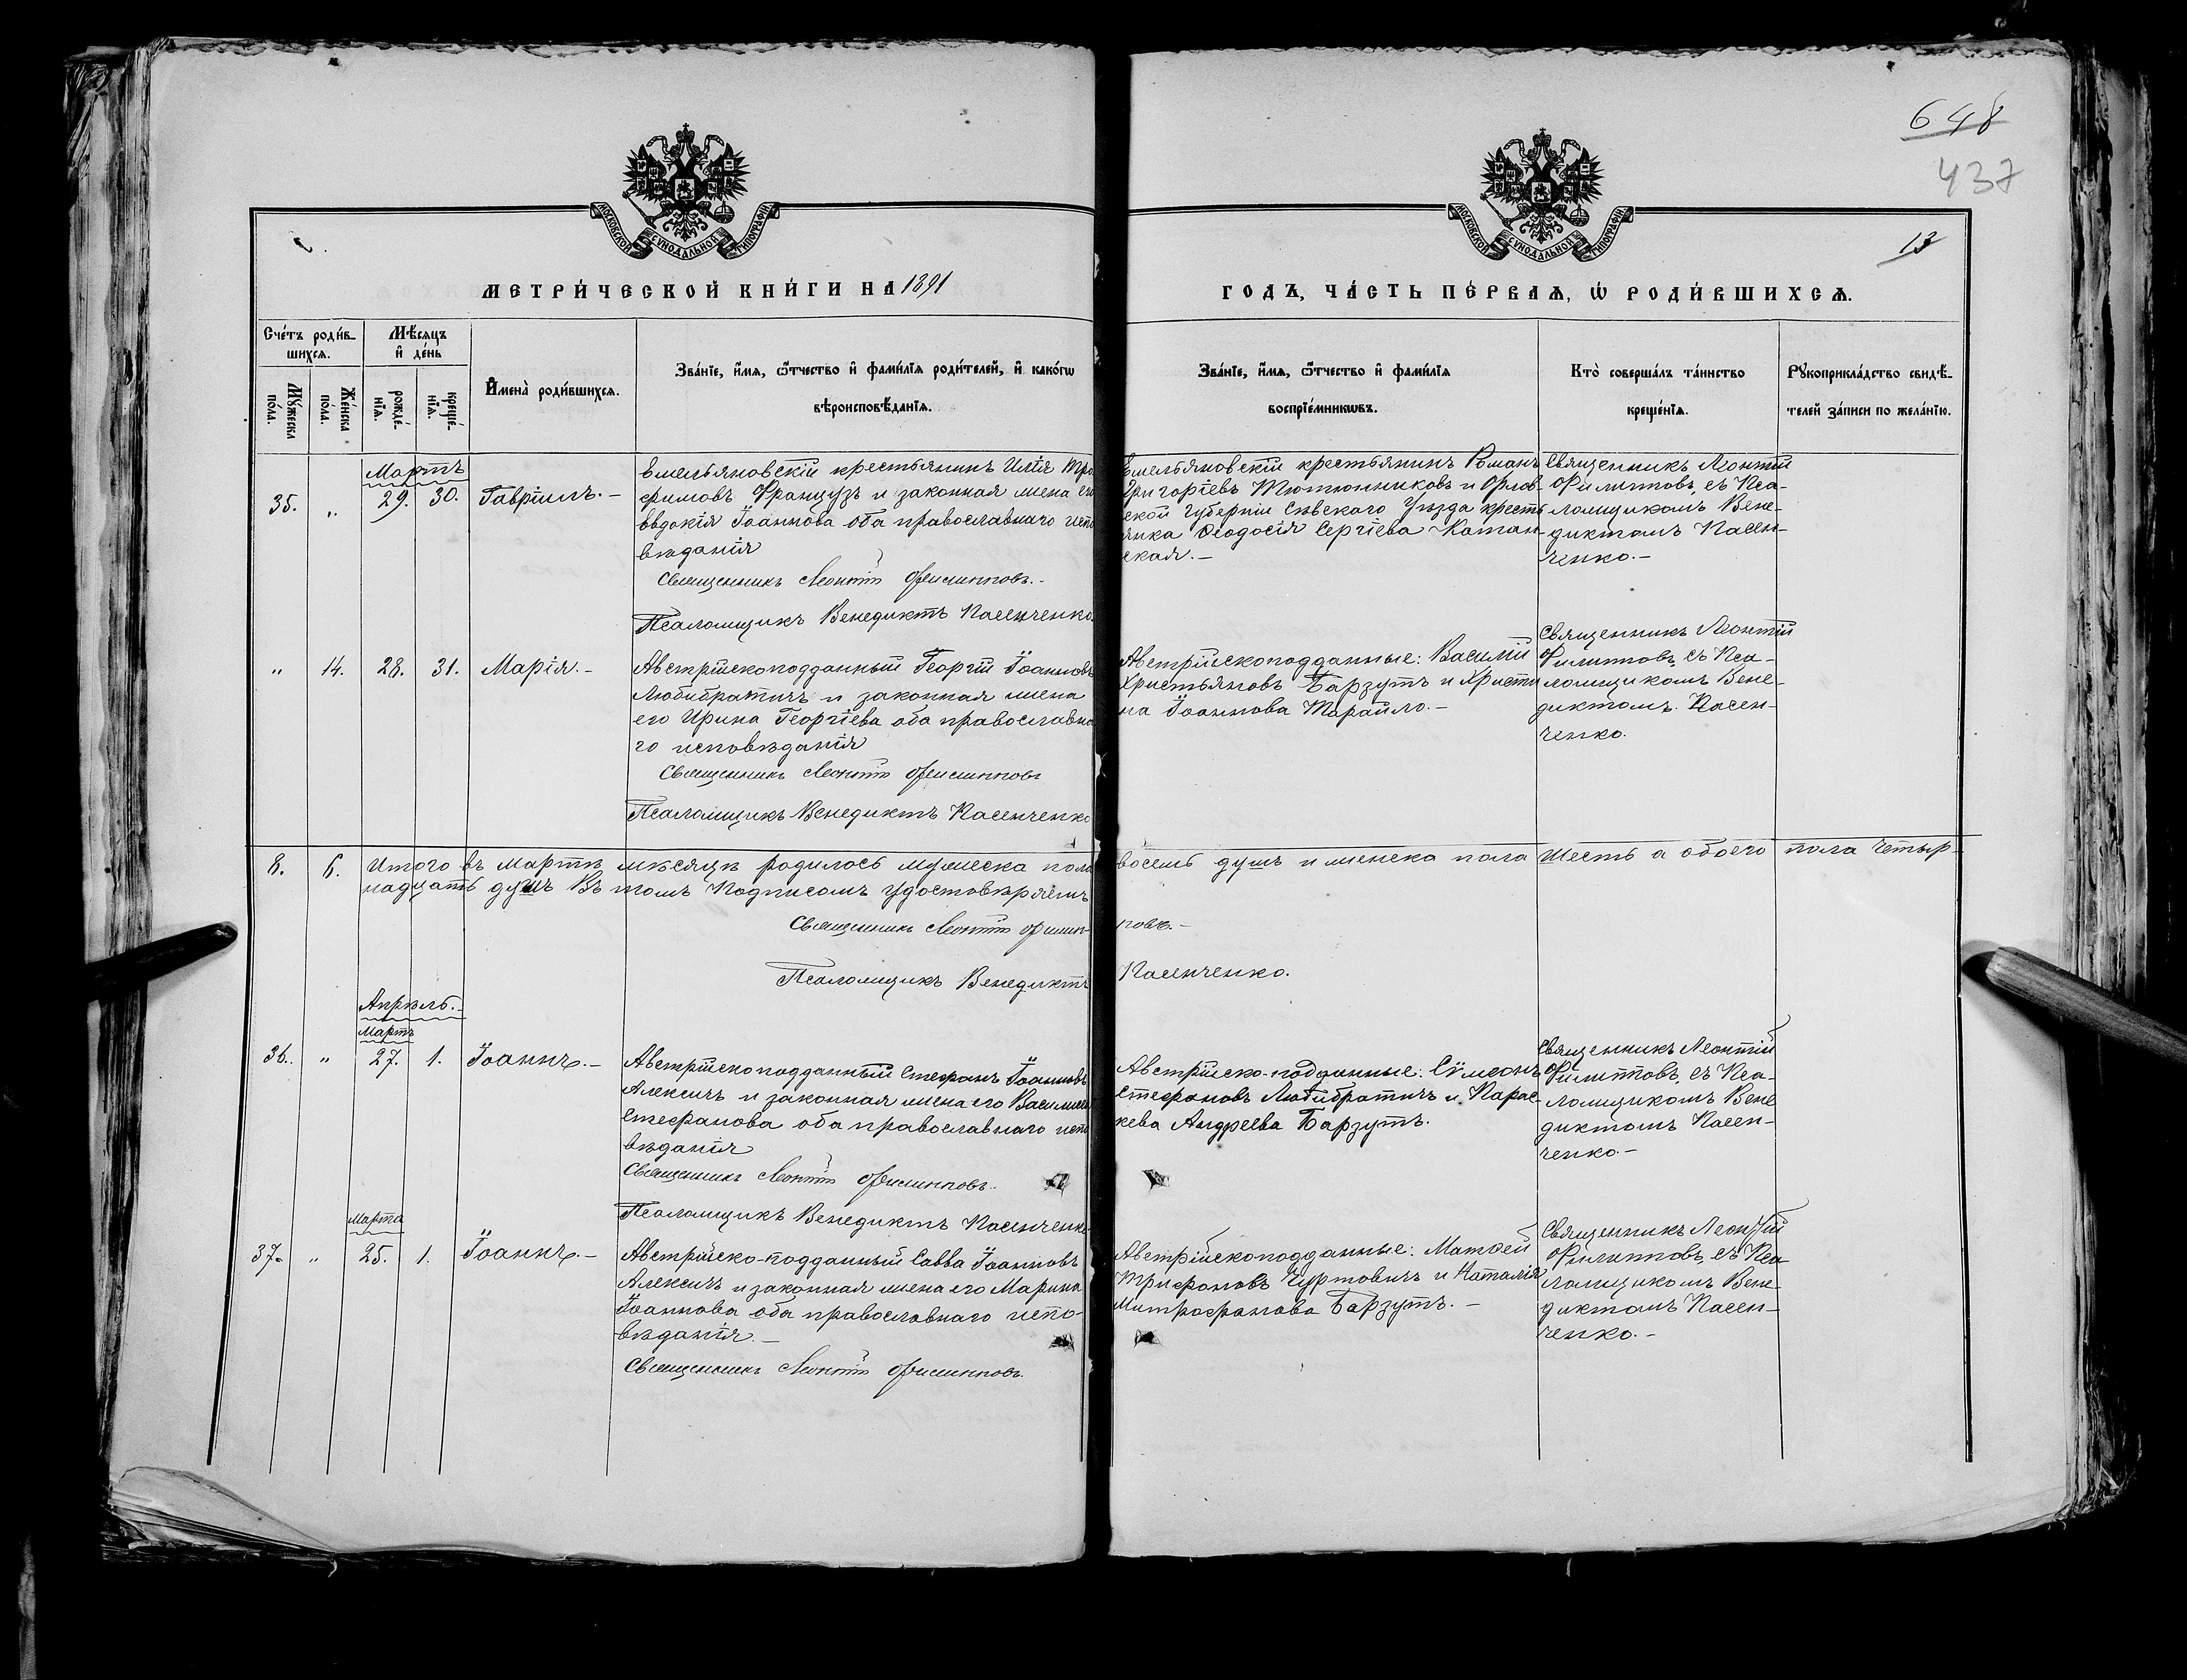 648
437
13
МОСКОВСКОЙ СѴНОДАЛЬНОЙ ТИПОГРАФІИ
МОСКОВСКОЙ СѴНОДАЛЬНОЙ ТИПОГРАФІИ
МЕТРИ́ЧЕСКОЙ КНИ́ГИ НА 1891
ГОДЪ, ЧА́СТЬ ПЕ́РВАѦ, Ѡ҆ РОДИ́ВШИХСѦ.
Сче́тъ роди́в-
шихсѧ.
Мѣ́сѧцъ
и҆ де́нь
Мꙋ́жеска
по́ла.
Же́нска
по́ла.
рожде́-
нїѧ.
креще́-
нїѧ.
И҆мена̀ роди́вшихсѧ.
Зва́нїе, и҆́мѧ, ѻ҆́тчество и҆ фами́лїѧ роди́телей, и҆ како́гѡ
вѣроисповѣ́данїѧ.
Зва́нїе, и҆́мѧ, ѻ҆́тчество и҆ фами́лїѧ
воспрїе́мникѡвъ.
Кто̀ соверша́лъ та́инство
креще́нїѧ.
Рꙋкоприкла́дство свидѣ́-
телей за́писи по жела́нїю.
Мартъ
35. „ 29. 30. Гавріилъ. –
Емельяновскій крестьянинъ Илія Тро
фимовъ Французъ и законная жена его
Евдокія Іоаннова оба православнаго испо
вѣданія
Священникъ Леонтій Филипповъ. -
Псаломщикъ Венедиктъ Пасенченко.
Емельяновскій крестьянинъ Романъ
Григоріевъ Тютюнниковъ и Орлов-
ской Губерніи Сѣвского Уѣзда кресть
янка Ѳеодосія Сергіева Катан-
ская. –
Священникъ Леонтій
Филипповъ, съ Пса-
ломщикомъ Вене-
диктомъ Пасен-
ченко. –
„ 14. 28. 31. Марія. –
Австрійскоподданный Георгій Іоанновъ
Любибратичъ и законная жена
его Ирина Георгіева оба православна
го исповѣданія
Священникъ Леонтій Филипповъ
Псаломщикъ Венедиктъ Пасенченко
Австрійскоподданные: Василій
Христьяновъ Барзутъ и Христи
на Іоаннова Тарайло. –
Священникъ Леонтій
Филипповъ, съ Пса-
ломщикомъ Вене-
диктомъ Пасен-
ченко.
8. 6. Итого въ Мартѣ мѣсяцѣ родилось мужеска пола восемь душъ и женска пола Шесть а обоего пола Четыр-
надцать душъ Въ томъ Подписомъ удостовѣряемъ
Священникъ Леонтій Филип- повъ. –
Псаломщикъ Венедиктъ Пасенченко.
Апрѣль. –
Мартъ
36. „ 27. 1. Іоаннъ. –
Австрійскоподданный Стефанъ Іоанновъ
Алексичъ и законная жена его Василисса
Стефанова оба православнаго испо
вѣданія
Священникъ Леонтій Филипповъ.
Псаломщикъ Венедиктъ Пасенченко
Австрійско-подданные: Сѵмеонъ
Стефановъ Любибратичъ и Парас-
кева Андреева Барзутъ.
Священникъ Леонтій
Филипповъ, съ Пса-
ломщикомъ Вене
диктомъ Пасен-
ченко. –
Марта
37. „ 25. 1. Іоаннъ. –
Австрійско-подданный Савва Іоанновъ
Алексичъ и законная жена его Марина
Іоаннова оба православнаго испо-
вѣданія. –
Священникъ Леонтій Филипповъ.
Австрійскоподданные: Матѳей
Трифоновъ Чуртовичъ и Наталія
Митрофанова Барзутъ. –
Священникъ Леонтій
Филипповъ, съ Пса
ломщикомъ Вене-
диктомъ Пасен-
ченко. –